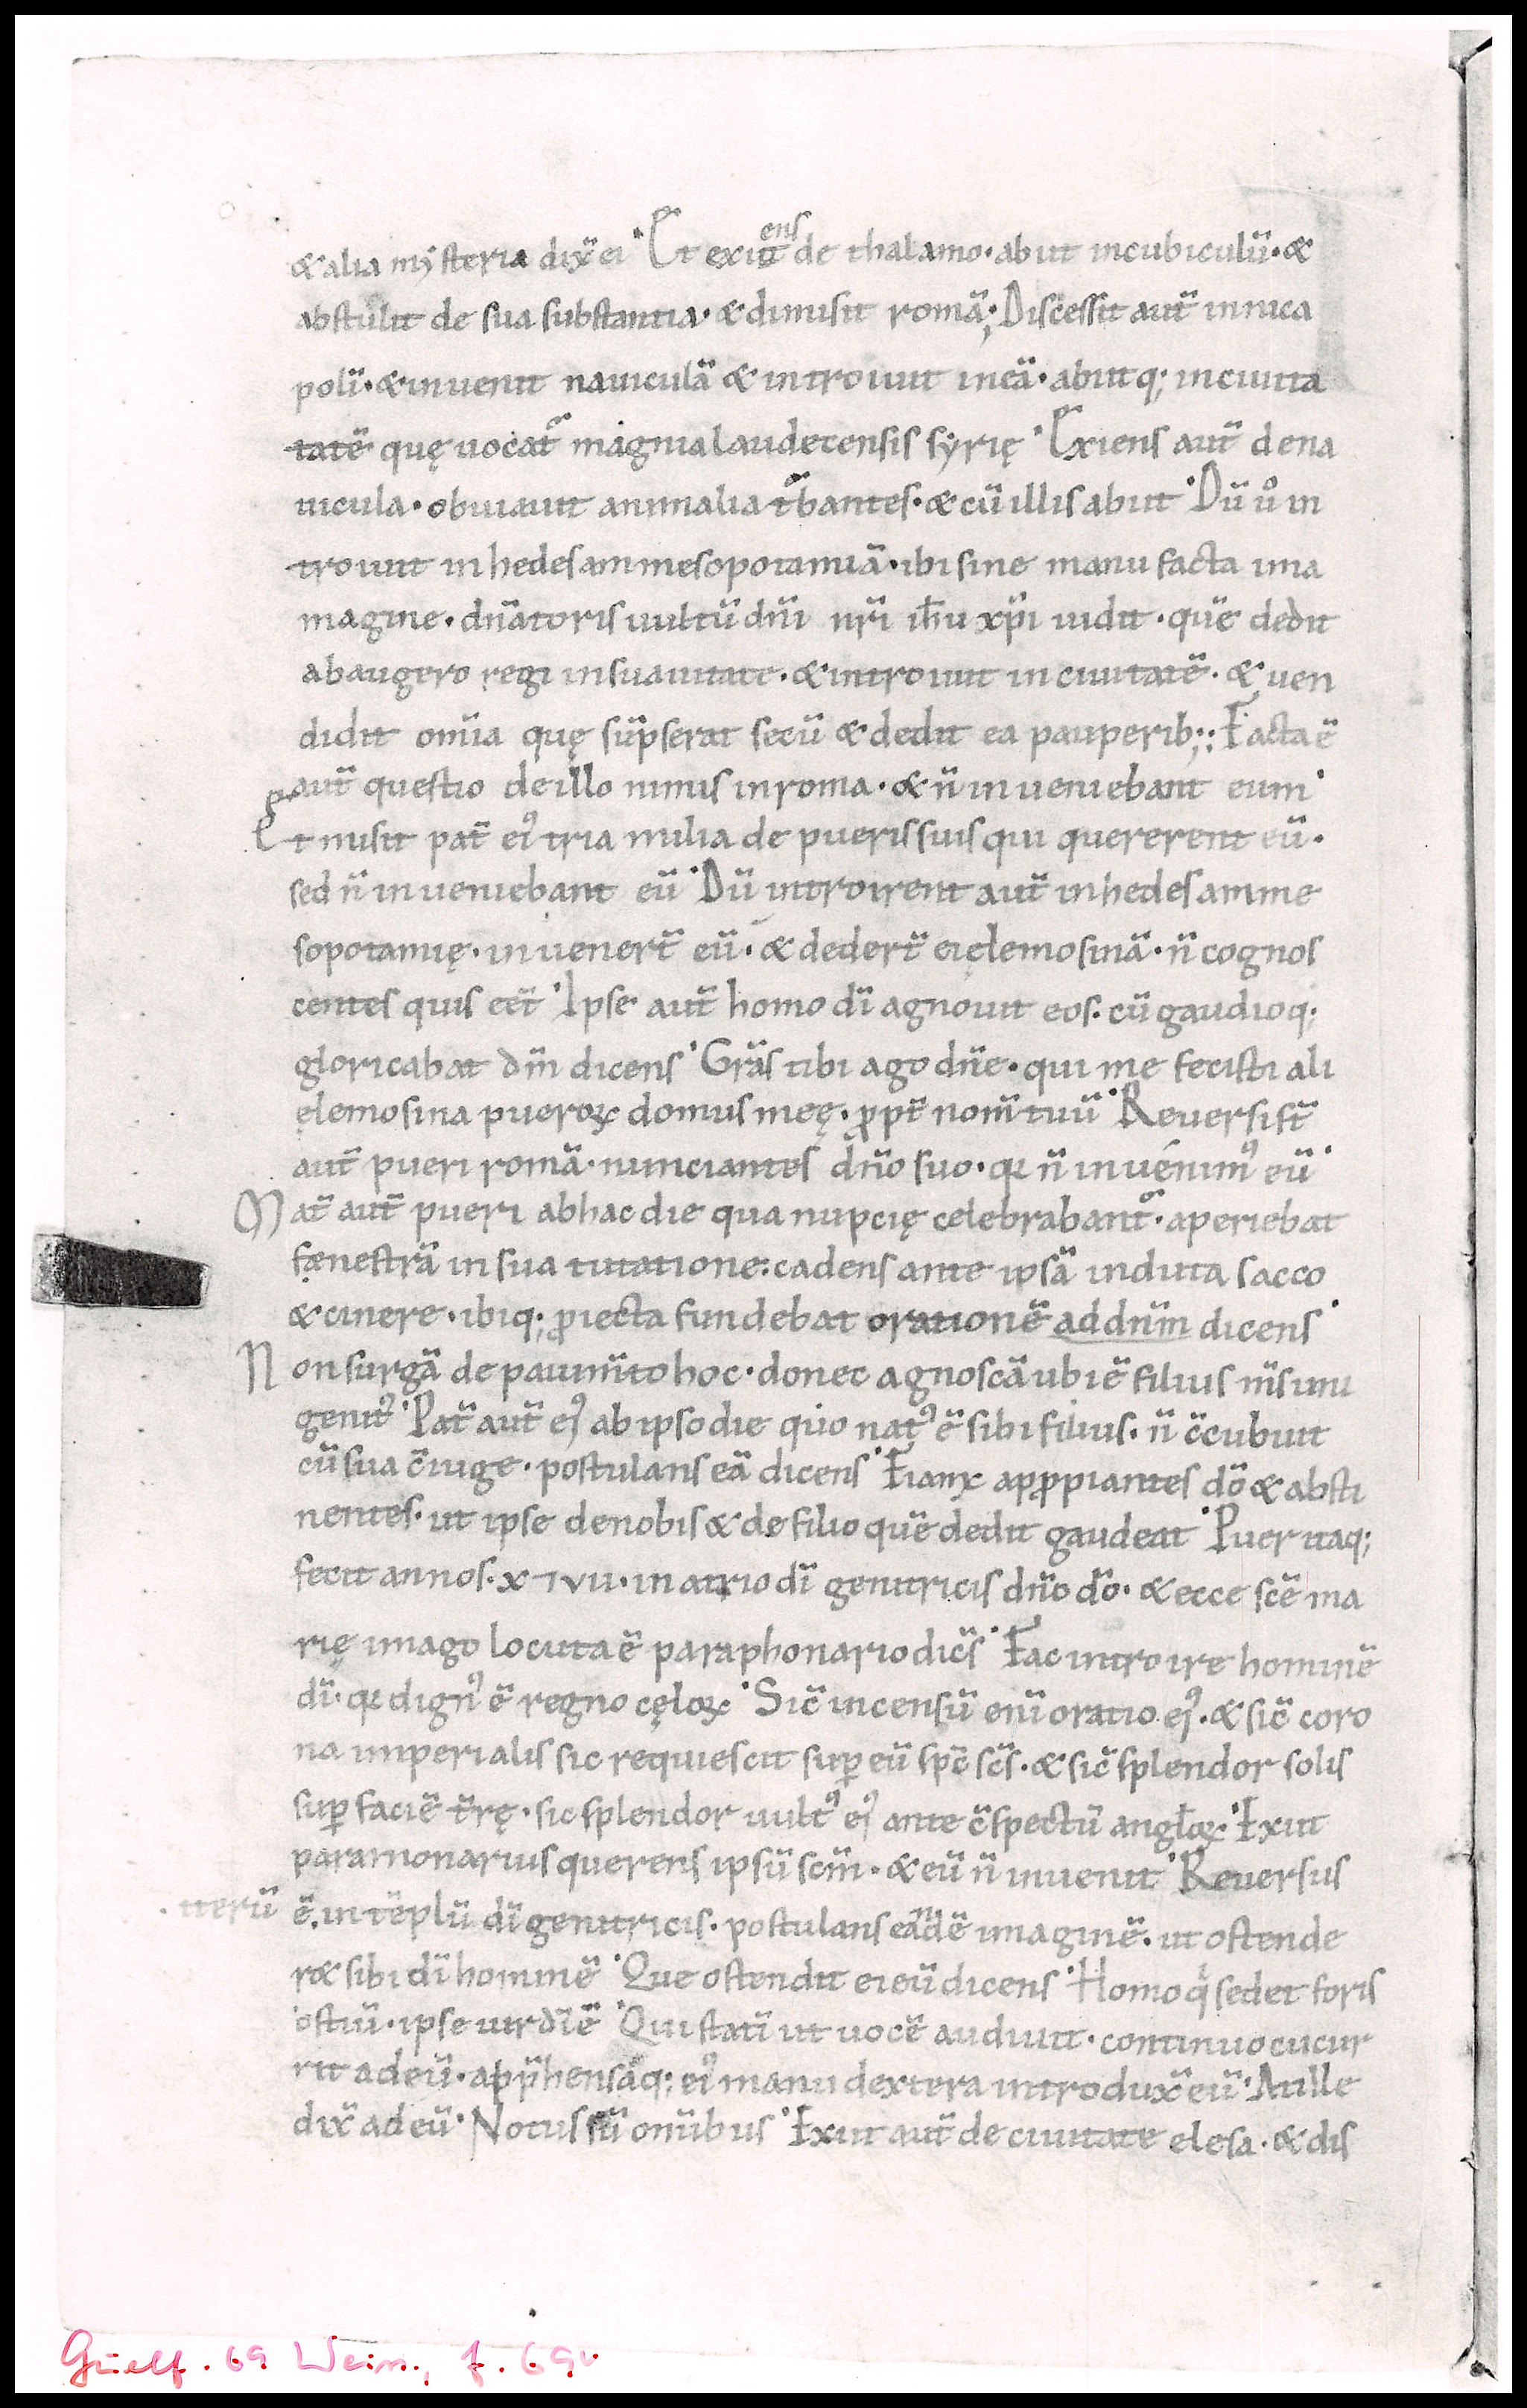 & alia mysteria dix̄ ei · Et exiuit ens de thalamo · abiit incubiculū · &
abstulit de sua substantia · & dimisit romā ; Discessit aut̄ in nica
polī · & inuenit nauiculā & introiuit ineā · abiitq; inciuita
tatē quę uocat᷒ magnialaudecensis syrię · Exiens aut̄ dena
uicula · obuiauit animalia t᷒bantes · & cū illis abiit · Dū ů in
troiuit inhedesam mesopotamiā · ibi sine manu facta ima
magine · dn̄atoris uultū dn̄i nr̄i ih̄u xp̄i uidit · quē dedit
abaugero regi insuauitate · & introiuit in ciuitatē · & uen
didit om̄ia quę sūpserat secū & dedit ea pauperib; : Facta ē
aut̄ questio de illo nimis inroma · & n̄ inueniebant eum ·
Et misit pat̄ ei᷒ tria milia de puerissuis qui quererent eū ·
sed n̄ inueniebant eū · Dū introirent aut̄ inhedesamme
sopotamię · inuenert̄ eū · & dedert̄ ei elemosinā · n̄ cognos
centes quis eēt · Ipse aut̄ homo dī agnouit eos · cū gaudioq;
gloricabat dn̄m dicens · Grās tibi ago dn̄e · qui me fecisti ali
ęlemosina pueroꝝ domus meę · ꝓpt̄ nom̄ tuū · Reuersi st̄
aut̄ pueri romā · nunciantes dn̄o suo · qꝛ n̄ inuénim᷒ eū ·
Mat̄ aut̄ pueri abhac die qua nupcię celebrabant᷒ · aperiebat
fęnestrā in sua tutatione : cadens ante ipsā induta sacco
& cinere · ibiq; ꝓiecta fundebat orationē ad dn̄m dicens ·
Non surgā de pauim̄to hoc · donec agnoscā ubi ē filius m̄s uni
genit᷒ · Pat̄ aut̄ ei᷒ ab ipso die quo nat᷒ ē sibi filius · n̄ c̄cubuit
cū sua c̄iuge · postulans eā dicens · Fiam᷒ apꝓpiantes dō & absti
nentes · ut ipse denobis & de filio quē dedit gaudeat · Puer itaq;
fecit annos · x ⁊ vii · in atrio dī genitricis dn̄o dō · & ecce scē ma
rię imago locuta ē paraphonario dic̄s · Fac introire hominē
dī · qꝛ dign᷒ ē regno cęloꝝ · Sic̄ incensū enī oratio ei᷒ · & sic̄ coro
na imperialis sic requiescit suꝑ eū sp̄c sc̄s · & sic̄ splendor solis
suꝑ faciē t̄rę · sic splendor uult᷒ ei᷒ ante c̄spectū angl̄oꝝ · Exiit
paramonarius querens ipsū sc̄m · & eū n̄ inuenit · Reuersus
· iterū ē, in tēplū dī genitricis · postulans eandē imaginē · ut ostende
r& sibi dī hominē · Que ostendit ei eū dicens · Homo qⁱ sedet foris
ostiū · ipse uir dī ē · Qui statī ut uocē audiuit · continuo cucur
rit ad eū · app̄hensāq; ei᷒ manu dextera introdux̄ eū · At ille
dix̄ ad eū · Notus sū om̄ibus · Exiit aut̄ de ciuitate elesa · & dis
Guelf. 69 Weiss., f. 69v